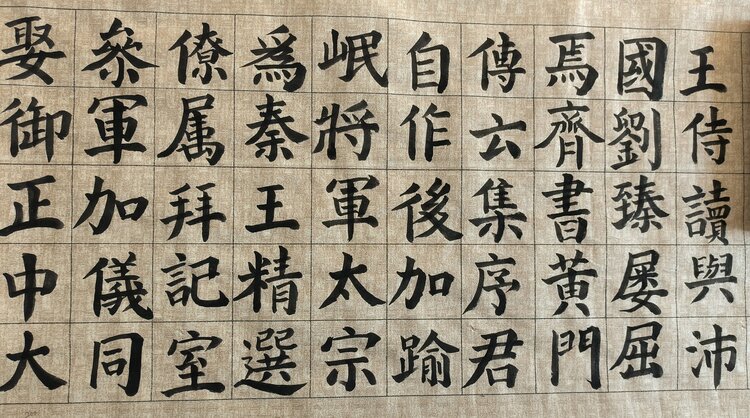 王侍讀與沛
國劉臻屡屈
焉齊書黄門
傳云集序君
自作後加踰
岷將軍太宗
爲秦王精選
僚属拜記室
叅軍加儀同
娶御正中大